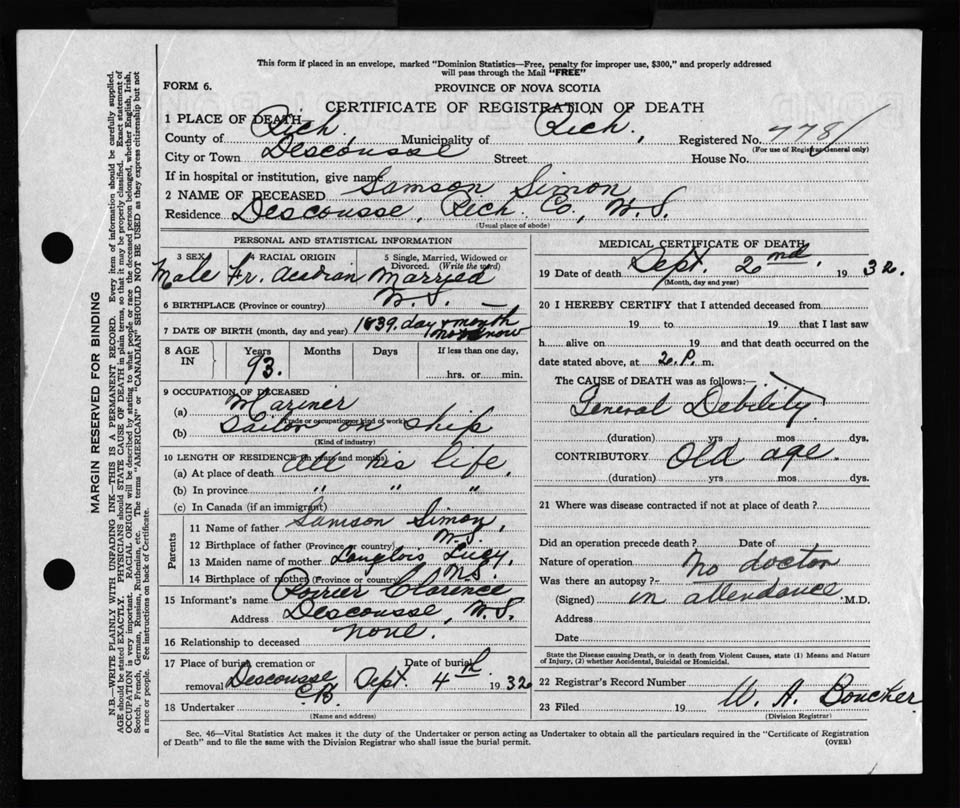 This form if placed in an envelope, marked "Dominion Statistics—Free, penalty for improper use, $300," and properly addressed
will pass through the Mail "FREE"
FORM 6.
PROVINCE OF NOVA SCOTIA
CERTIFICATE OF REGISTRATION OF DEATH
1 PLACE OF DEATH
County of Rich. Municipality of Rich., Registered No. 778
(For use of Registrar General only)
City or Town Descousse Street House No.
If in hospital or institution, give name
2 NAME OF DECEASED Samson Simon
Residence Descousse, Rich. Co., N.S.
(Usual place of abode)
PERSONAL AND STATISTICAL INFORMATION
3 SEX 4 RACIAL ORIGIN 5 Single, Married, Widowed or Divorced. (Write the word)
Male Fr. Acadian Married
6 BIRTHPLACE (Province or country) N.S. —
7 DATE OF BIRTH (month, day and year) 1839, day & month not know
8 AGE IN Years Months Days If less than one day,
93. hrs. or min.
9 OCCUPATION OF DECEASED
(a) Mariner
(Trade or occupation or kind of work)
(b) Sailor on ship
(Kind of industry)
10 LENGTH OF RESIDENCE (in years and months)
(a) At place of death all his life.
(b) In province " " "
(c) In Canada (if an immigrant)
Parents
11 Name of father Samson Simon,
12 Birthplace of father (Province or country) N.S.
13 Maiden name of mother Langlois Lucy,
14 Birthplace of mother (Province or country) N.S.
15 Informant's name Poirier Clarence
Address Descousse, N.S.
16 Relationship to deceased none.
17 Place of burial, cremation or removal Descousse C.B. Date of burial Sept. 4th 1932
18 Undertaker
(Name and address)
MEDICAL CERTIFICATE OF DEATH
19 Date of death Sept. 2nd. 1932.
(Month, day and year)
20 I HEREBY CERTIFY that I attended deceased from
19 to 19 that I last saw
h alive on 19 and that death occurred on the
date stated above, at 2.P. m.
The CAUSE of DEATH was as follows:—
General Debility
(duration) yrs mos dys.
CONTRIBUTORY Old age.
(duration) yrs mos dys.
21 Where was disease contracted if not at place of death?
Did an operation precede death? Date of
Nature of operation No doctor
Was there an autopsy?
(Signed) in attendance M.D.
Address
Date
State the Disease causing Death, or in death from Violent Causes, state (1) Means and Nature
of Injury, (2) whether Accidental, Suicidal or Homicidal.
22 Registrar's Record Number
23 Filed 19 W. A. Boucher
(Division Registrar)
Sec. 46—Vital Statistics Act makes it the duty of the Undertaker or person acting as Undertaker to obtain all the particulars required in the "Certificate of Registration
of Death" and to file the same with the Division Registrar who shall issue the burial permit.
(OVER)
MARGIN RESERVED FOR BINDING
N.B.—WRITE PLAINLY WITH UNFADING INK—THIS IS A PERMANENT RECORD. Every item of information should be carefully supplied.
AGE should be stated EXACTLY. PHYSICIANS should STATE CAUSE OF DEATH in plain terms, so that it may be properly classified. Exact statement of
OCCUPATION is very important. RACIAL ORIGIN will be described by stating to what people or race the deceased person belonged, whether English, Irish,
Scotch, French, German, Russian, Ruthenian, etc. The terms "AMERICAN" or "CANADIAN" SHOULD NOT BE USED as they express citizenship but not
a race or people. See instructions on back of Certificate.